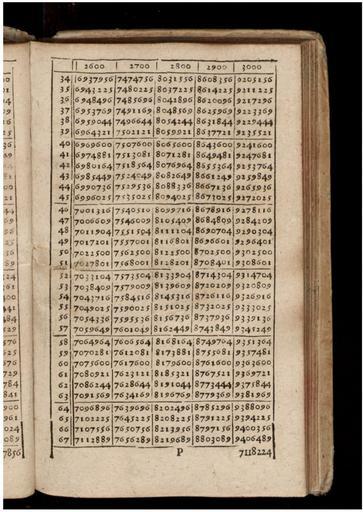 2600 2700 2800 2900 3000
34 6937956 7474756 8031556 8608356 9205156
35 6943225 7480225 8037225 8614225 9211225
36 6948496 7485696 8042896 8620096 9217296
37 6953769 7491169 8048569 8625969 9223369
38 6959044 7496644 8054244 8631844 9229444
39 6964321 7502121 8059921 8637721 9235521
40 6969600 7507600 8065600 8643600 9241600
41 6974881 7513081 8071281 8649481 9247681
42 6980164 7518564 8076964 8655364 9253764
43 6985449 7524049 8082649 8661249 9259849
44 6990736 7529536 8088336 8667136 9265936
45 6996025 7535025 8094025 8673025 9272025
46 7001316 7540516 8099716 8678916 9278116
47 7006609 7546009 8105409 8684809 9284209
48 7011904 7551504 8111104 8690704 9290304
49 7017201 7557001 8116801 8696601 9296401
50 7022500 7562500 8122500 8702500 9302500
51 7027801 7568001 8128201 8708401 9308601
52 7033104 7573504 8133904 8714304 9314704
53 7038409 7579009 8139609 8720209 9320809
54 7043716 7584516 8145316 8726116 9326916
55 7049025 7590025 8151025 8732025 9333025
56 7054336 7595536 8156736 8737936 9339136
57 7059649 7601049 8162449 8743849 9345249
58 7064964 7606564 8168164 8749764 9351364
59 7070281 7612081 8173881 8755081 9357481
60 7075600 7617600 8179600 8761600 9363600
61 7080921 7623121 8185321 8767521 9369721
62 7086244 7628644 8191044 8773444 9375844
63 7091569 7634169 8196769 8779369 9381969
64 7096896 7639696 8202496 8785296 9388096
65 7102225 7645225 8208225 8791225 9394225
66 7107556 7650756 8213956 8797156 9400356
67 7112889 7656289 8219689 8803089 9406489
P 7118224